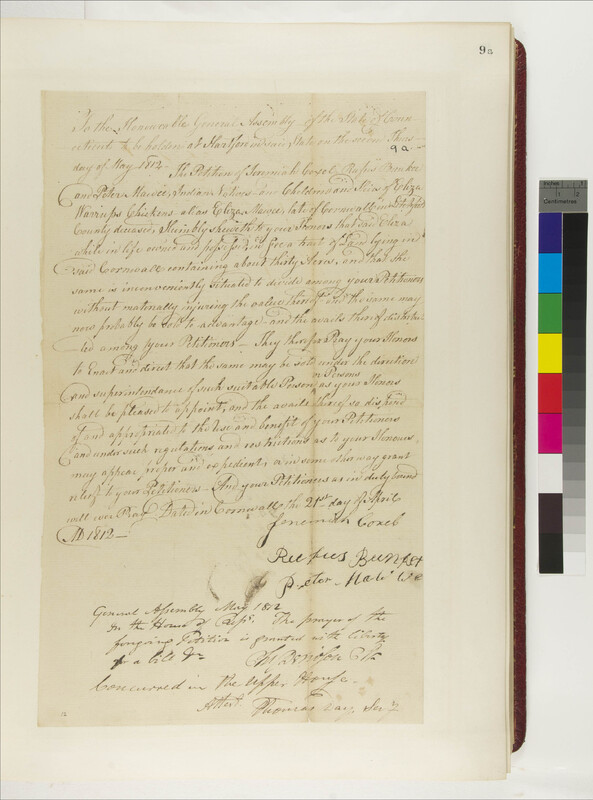 9a
To the Honorable General Assembly of the State of Conn-
ecticut to be holden at Hartford in said State on the second Thurs-
9a
day of May 1812. The Petition of Jeremiah Coxel Rufus Bunker
and Peter Mawee, Indian Natives and Children and Heirs of Eliza
Warrups Chickens alias Eliza Mawee, late of Cornwall in Litchfield
County deceased, Humbly sheweth to your Honors that said Eliza
while in life owned and possessed in fee a tract of Land lying in
said Cornwall containing about thirty Acres, and that the
same is inconveniently situated to divide among your Petitioners
without materially injuring the value thereof and the same may
now probably be sold to advantage and the avails thereof distribu-
ted among your Petitioners — They therefore Pray your Honors
to Enact and direct that the same may be sold under the direction
or Persons
and superintendance of such suitable Person as your Honors
shall be pleased to appoint, and the avails thereof so disposed
of and appropriated to the Use and benefit of your Petitioners
and under such regulations and restrictions as to your Honours
may appear proper and expedient, or in some other way grant
relief to your Petitioners — And your Petitioners as in duty bound
will ever Pray Dated in Cornwall the 21st day of April
AD 1812 —
Jeremiah Coxel
Rufus Bunker
Peter Mawwe
General Assembly May 1812
In the House of Reps. The prayer of the
foregoing Petition is granted with liberty
for a bill &c
Clk
Concurred in the Upper House.
Attest Thomas Day, Secy
12
Inches
1
2
Centimetres